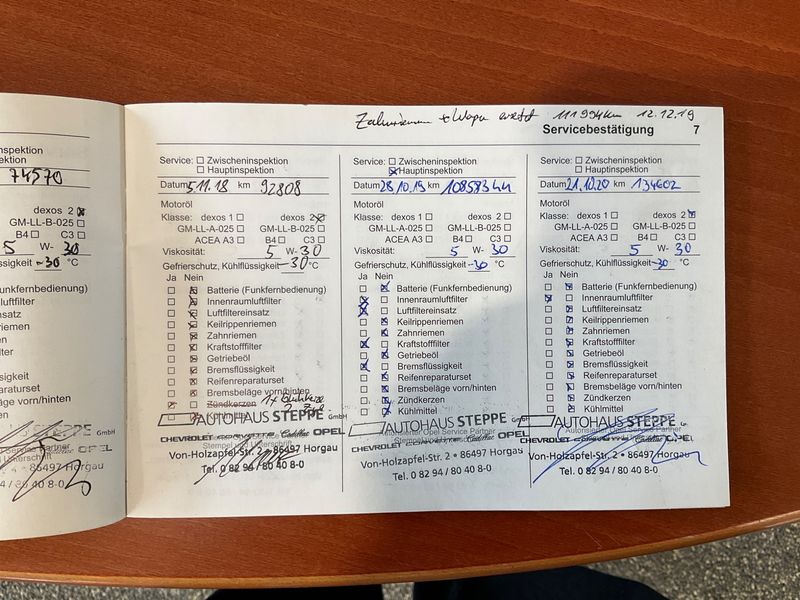 Zahnriemen + Wapu ersetzt 111994km 12.12.19
Servicebestätigung 7
nspektion
ektion
74570
dexos 2
GM-LL-B-025
B4 C3
5 W- 30
lüssigkeit -30 °C
unkfernbedienung)
luftfilter
insatz
iemen
n
filter
sigkeit
aturset
äge vorn/hinten
n
STEPPE GmbH
OPEL
• 86497 Horgau
4 / 80 40 8-0
Service: Zwischeninspektion
Hauptinspektion
Datum 5.11.18 km 92808
Motoröl
Klasse: dexos 1 dexos 2
GM-LL-A-025 GM-LL-B-025
ACEA A3 B4 C3
Viskosität: 5 W- 30
Gefrierschutz, Kühlflüssigkeit -30 °C
Ja Nein
Batterie (Funkfernbedienung)
Innenraumluftfilter
Luftfiltereinsatz
Keilrippenriemen
Zahnriemen
Kraftstofffilter
Getriebeöl
Bremsflüssigkeit
Reifenreparaturset
Bremsbeläge vorn/hinten
Zündkerzen
AUTOHAUS STEPPE GmbH
CHEVROLET CORVETTE Cadillac OPEL
Von-Holzapfel-Str. 2 • 86497 Horgau
Tel. 0 82 94 / 80 40 8-0
Service: Zwischeninspektion
Hauptinspektion
Datum 28.10.19 km 108583 km
Motoröl
Klasse: dexos 1 dexos 2
GM-LL-A-025 GM-LL-B-025
ACEA A3 B4 C3
Viskosität: 5 W- 30
Gefrierschutz, Kühlflüssigkeit -30 °C
Ja Nein
Batterie (Funkfernbedienung)
Innenraumluftfilter
Luftfiltereinsatz
Keilrippenriemen
Zahnriemen
Kraftstofffilter
Getriebeöl
Bremsflüssigkeit
Reifenreparaturset
Bremsbeläge vorn/hinten
Zündkerzen
Kühlmittel
AUTOHAUS STEPPE GmbH
Autorisierter Opel Service Partner
CHEVROLET Cadillac OPEL
Von-Holzapfel-Str. 2 • 86497 Horgau
Tel. 0 82 94 / 80 40 8-0
Service: Zwischeninspektion
Hauptinspektion
Datum 21.10.20 km 134602
Motoröl
Klasse: dexos 1 dexos 2
GM-LL-A-025 GM-LL-B-025
ACEA A3 B4 C3
Viskosität: 5 W- 30
Gefrierschutz, Kühlflüssigkeit -30 °C
Ja Nein
Batterie (Funkfernbedienung)
Innenraumluftfilter
Luftfiltereinsatz
Keilrippenriemen
Zahnriemen
Kraftstofffilter
Getriebeöl
Bremsflüssigkeit
Reifenreparaturset
Bremsbeläge vorn/hinten
Zündkerzen
Kühlmittel
AUTOHAUS STEPPE
CHEVROLET
Von-Holzapfel-Str. 2 • 86497 Horgau
Tel. 0 82 94 / 80 40 8-0